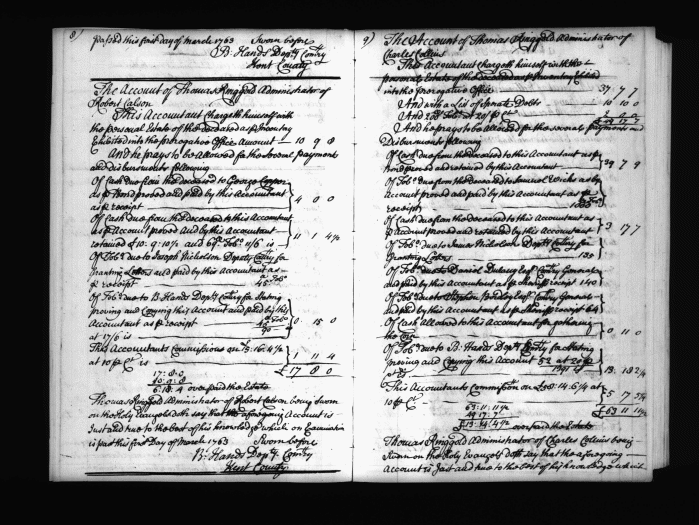 8)
passed this first day of March 1763 Sworn before
B: Hands Depty Comry
Kent County
The Account of Thomas Ringgold Administrator of
Robert Calson
This Accountant Chargeth himself with
the personal Estate of the deceased as p Inventory
Exhibited into the prerogative Office Amount — 10 9 8
And he prays to be Allowed for the several payments
and disbursments following
Of Cash due from the deceased to George
as p Bond proved and paid by this Accountant
as p receipt 4 0 0
Of Cash due from the deceased to this Accountant
as p Account proved And by this Accountant
retained £10:9:10½ and 69 Tobo 11/6 is — 11 1 4½
Of Tobo due to Joseph Nicholson Depty Comry for
granting Letters and paid by this Accountant as
p receipt
Of Tobo due to B: Hands Depty Comry for Stating
proving and Copying this Account and paid by this
Accountant as p receipt
90
at 17/6 is 0 15 0
This Accountants Commissions on £15:16:4½
at 10 p Ct is 1 11 4
£17 8 0
17:8:0
10:9:8
6:18:4 over paid the Estate
Thomas Ringgold Administrator of Robert Calson being Sworn
on the Holy Evangels doth say that the aforegoing Account is
Just and true to the best of his knowledge which on Examination
is past this first Day of March 1763 Sworn before
B: Hands Depty Comry
Kent County
9)
The Account of Thomas Ringgold Administrator of
Charles Collins
This Accountant Chargeth himself with the
personal Estate of the deceased as p Inventory Exhibited
into the prerogative Office 37 7 7
And with a List of Sperate Debts 10 10 0
And Tobo at 20/ p Ct
And he prays to be Allowed for the several payments and
Disbursments following
Of Cash due from the deceased to this Accountant as p
Bond proved and retained by this Accountant 39 7 9
Of Tobo due from the deceased to Samuel Wickes as by
Account proved and paid by this Accountant as p
receipt
Of Cash due from the deceased to this Accountant as
p Account proved and retained by this Accountant 3 17 7
Of Tobo due to James Nicholson Depty Comry for
Granting Letters 130
Of Tobo due to Daniel Dulany Esqr Comry General
and paid by this Accountant as p Sheriffs receipt 140
Of Tobo due to Stephen Bordley Esqr Comry General
and paid by this Accountant as p Sheriffs receipt 64
Of Cash Allowed to this Accountant for gathering
the Corn 0 11 0
Of Tobo due to B: Hands Depty Comry for Stating
proving and Copying this Account 52 at 20/ p
Ct is 13 18 2¼
This Accountants Commission on £58:14:6¼ at
10 p Ct 5 17 5¼
£63 11 11½
63:11:11½
over paid the Estate
Thomas Ringgold Administrator of Charles Collins being
Sworn on the Holy Evangels doth say that the aforegoing
Account is Just and true to the best of his knowledge which